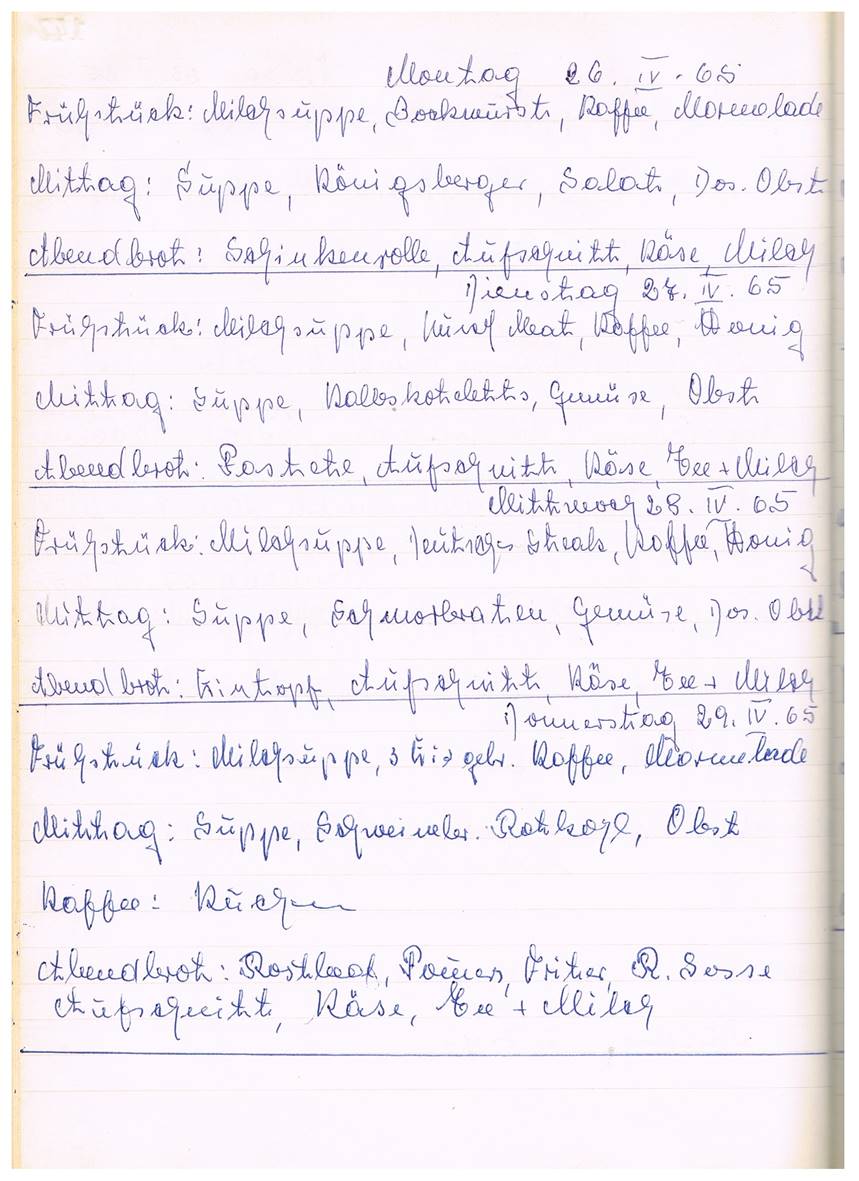 Montag 26. IV. 65
Frühstück: Milchsuppe, Bockwurst, Kaffee, Marmelade
Mittag: Suppe, Königsberger, Salat, Dos. Obst
Abendbrot: Schinkenrolle, Aufschnitt, Käse, Milch
Dienstag 27. IV. 65
Frühstück: Milchsuppe, Meat, Kaffee, Honig
Mittag: Suppe, Kalbskoteletts, Gemüse, Obst
Abendbrot: Pastete, Aufschnitt, Käse, Tee + Milch
Mittwoch 28. IV. 65
Frühstück: Milchsuppe, Steak, Kaffee, Honig
Mittag: Suppe, Schmorbraten, Gemüse, Dos. Obst
Abendbrot: Eintopf, Aufschnitt, Käse, Tee + Milch
Donnerstag 29. IV. 65
Frühstück: Milchsuppe, 3 Ei gebr. Kaffee, Marmelade
Mittag: Suppe, Schweinebr. Rotkohl, Obst
Kaffee: Kuchen
Abendbrot: Pommes, Frites, R. Sosse
Aufschnitt, Käse, Tee + Milch